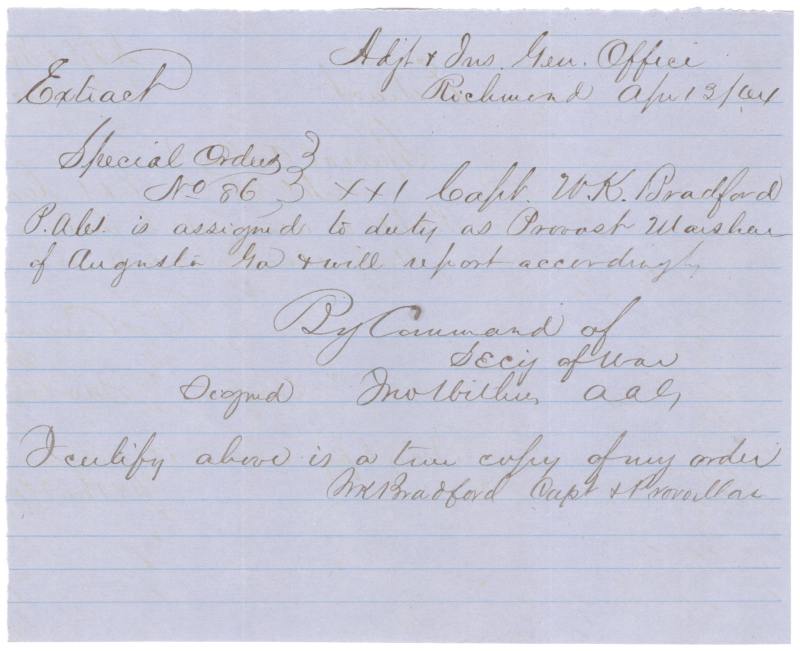 Adjt & Ins. Gen. Office
Extract Richmond Apr 13/64
Special Orders }
No 86 } XXI Capt. W.K. Bradford
P. A is assigned to duty as Provost Marshal
of Augusta Ga & will report accordingly
By Command of
Secy of War
Signed Jno Withers AAG
I certify above is a true copy of my order
WK Bradford Capt & Provo Mar